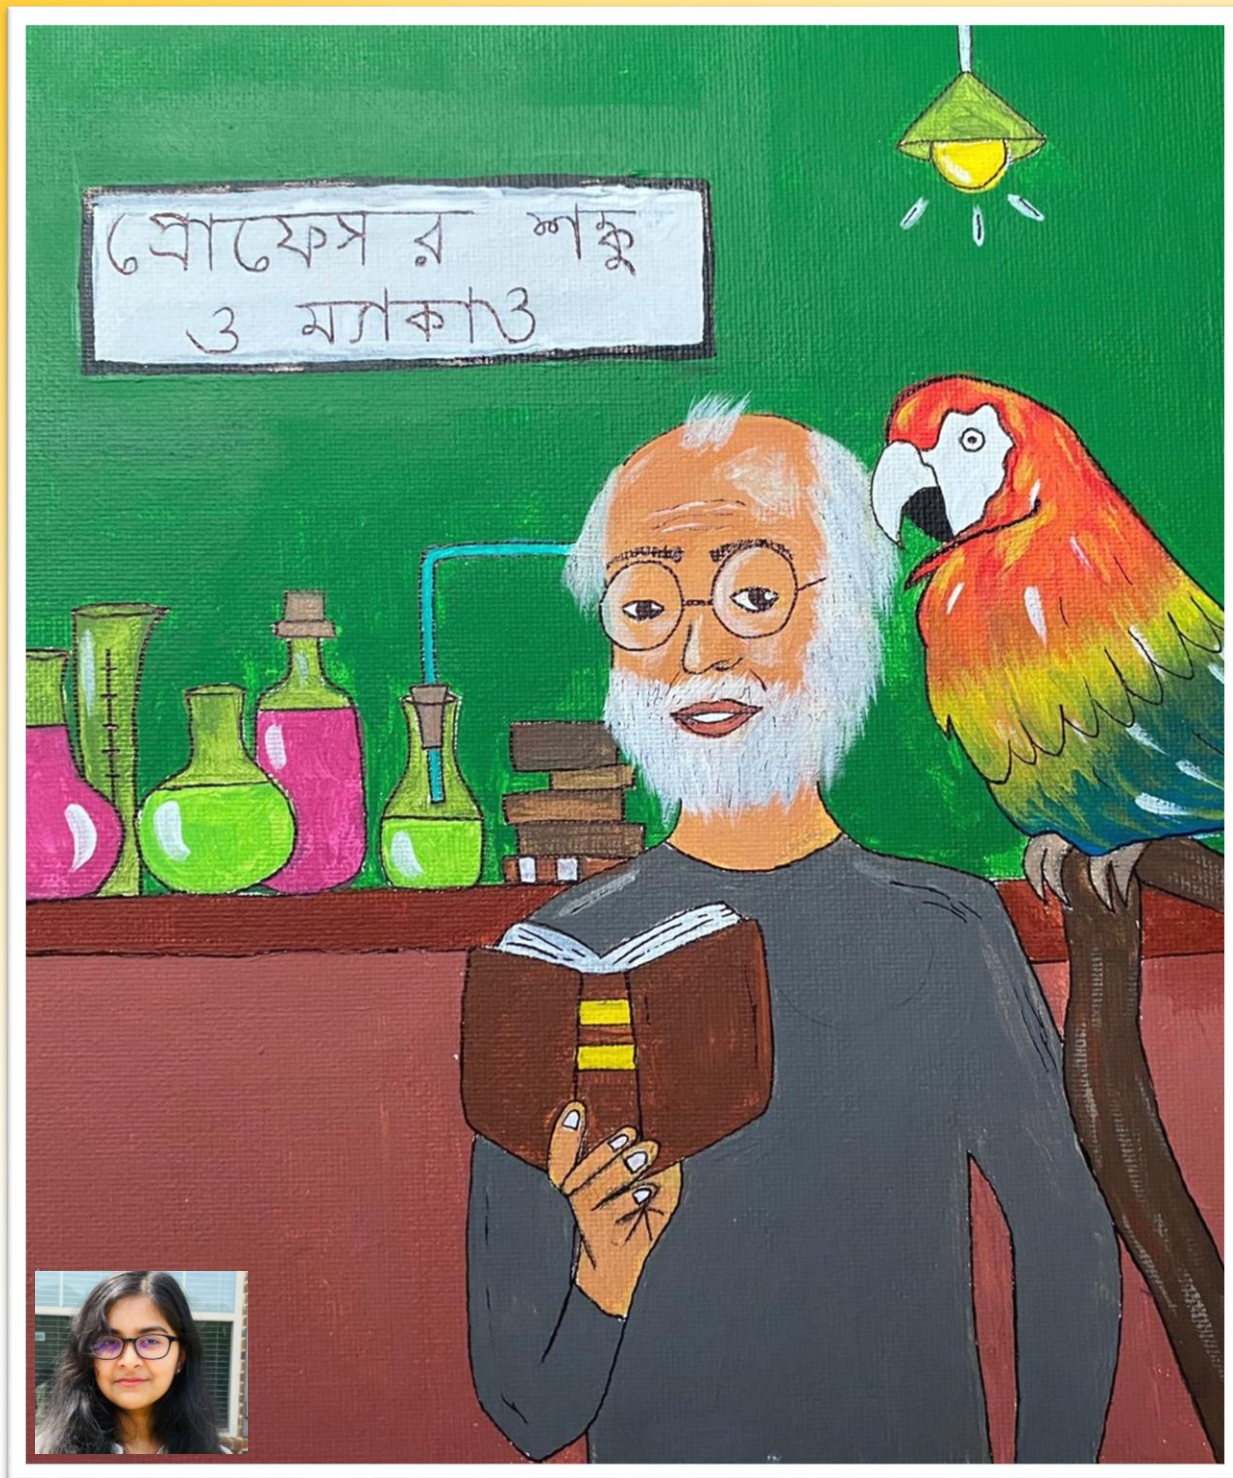 প্রোফেসর শঙ্কু
ও ম্যাকাও